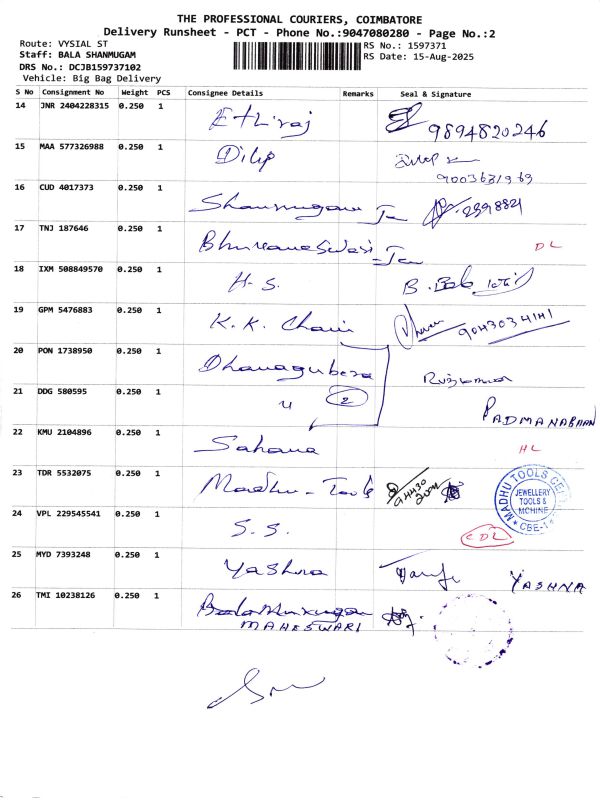 THE PROFESSIONAL COURIERS, COIMBATORE
Delivery Runsheet - PCT - Phone No.:9047080280 - Page No.:2
Route: VYSIAL ST
Staff: BALA SHANMUGAM
DRS No.: DCJB159737102
Vehicle: Big Bag Delivery
RS No.: 1597371
RS Date: 15-Aug-2025
S No Consignment No Weight PCS Consignee Details Remarks Seal & Signature
14 JNR 2404228315 0.250 1 Ethiraj 9894820246
15 MAA 577326988 0.250 1 Dilip
16 CUD 4017373 0.250 1 Shanmugam
17 TNJ 187646 0.250 1 DL
18 IXM 508849570 0.250 1 H.S. B.
19 GPM 5476883 0.250 1 K.K. Chain 9043034141
20 PON 1738950 0.250 1 Dhanagubera
21 DDG 580595 0.250 1 " 2 PADMANABAAN
22 KMU 2104896 0.250 1 Sahana HL
23 TDR 5532075 0.250 1 Madhu - Tools
MADHU TOOLS
JEWELLERY
TOOLS &
MCHINE
24 VPL 229545541 0.250 1 S.S. CDL
25 MYD 7393248 0.250 1 Yashna YASHNA
26 TMI 10238126 0.250 1
MAHESWARI